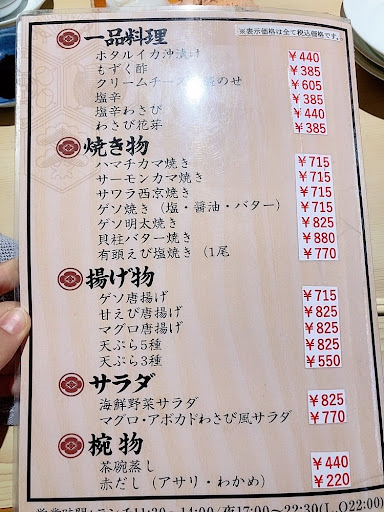 ※表示価格は全て税込価格です。
一品料理
ホタルイカ沖漬け ￥440
もずく酢 ￥385
クリームチーズ のせ ￥605
塩辛 ￥385
塩辛わさび ￥440
わさび花芽 ￥385
焼き物
ハマチカマ焼き ￥715
サーモンカマ焼き ￥715
サワラ西京焼き ￥715
ゲソ焼き（塩・醤油・バター） ￥715
ゲソ明太焼き ￥825
貝柱バター焼き ￥880
有頭えび塩焼き（1尾 ￥770
揚げ物
ゲソ唐揚げ ￥715
甘えび唐揚げ ￥825
マグロ唐揚げ ￥825
天ぷら5種 ￥825
天ぷら3種 ￥550
サラダ
海鮮野菜サラダ ￥825
マグロ・アボカドわさび風サラダ ￥770
椀物
茶碗蒸し ￥440
赤だし（アサリ・わかめ） ￥220
営業時間：ランチ11:30～14:00/夜17:00～22:30(L.O22:00)